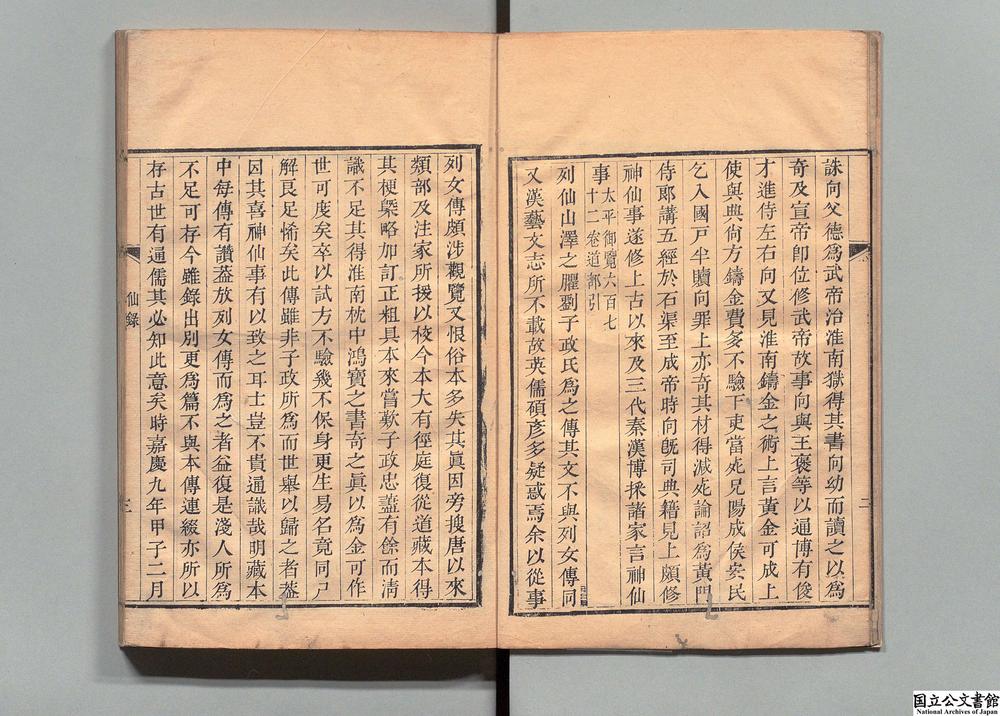 誅向父德為武帝治淮南獄得其書向幼而讀之以為
奇及宣帝卽位修武帝故事向與王褒等以通博有俊
才進侍左右向又見淮南鑄金之術上言黃金可成上
使與典尙方鑄金費多不驗下吏當死兄陽成侯安民
乞入國戸半贖向罪上亦奇其材得減死論詔為黃門
侍郎講五經於石渠至成帝時向旣司典籍見上頗修
神仙事遂修上古以來及三代秦漢博採諸家言神仙
事太平御覽六百七
十二卷道部引
列仙山澤之臞劉子政氏為之傳其文不與列女傳同
又漢藝文志所不載故英儒碩彥多疑惑焉余以從事
二
列女傳頗涉觀覽又恨俗本多失其眞因旁搜唐以來
類部及注家所援以校今本大有徑庭復從道藏本得
其梗槩略加訂正粗具本來嘗歎子政忠藎有餘而淸
識不足其得淮南枕中鴻寶之書奇之眞以為金可作
世可度矣卒以試方不驗幾不保身更生易名竟同尸
解良足悕矣此傳雖非子政所為而世舉以歸之者蓋
因其喜神仙事有以致之耳士豈不貴通識哉明藏本
中每傳有讚葢放列女傳而為之者益復是淺人所為
不足可存今雖錄出別更為篇不與本傳連綴亦所以
存古世有通儒其必知此意矣時嘉慶九年甲子二月
仙錄
三
国立公文書館
National Archives of Japan